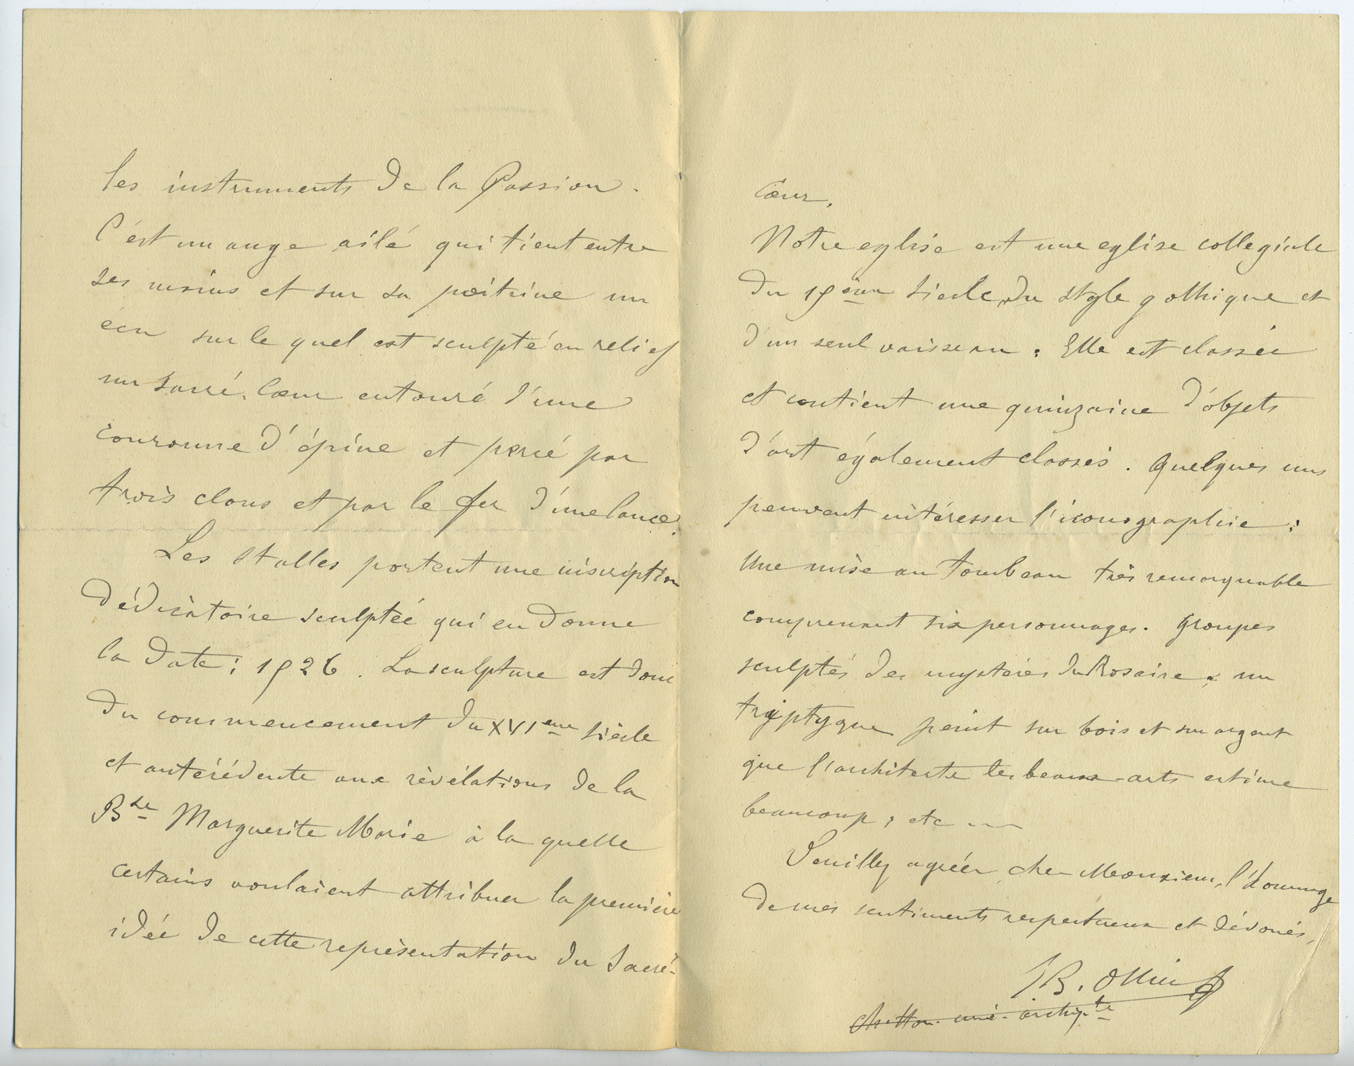 les instruments de la Passion.
C'est un ange ailé qui tient entre
ses mains et sur sa poitrine un
écu sur le quel est sculpté en relief
un Sacré-Cœur entouré d'une
couronne d'épine et percé par
trois clous et par le fer d'une lance.
Les stalles portent une inscription
dédicatoire sculptée qui en donne
la date : 1526. La sculpture est donc
du commencement du XVIeme siècle
et antérédente aux révélations de la
Bse Marguerite Marie à la quelle
certains voulaient attribuer la première
idée de cette représentation du Sacré-
Cœur.
Notre eglise est une eglise collegiale
du 15ème siecle, du style gothique et
d'un seul vaisseau. Elle est classée
et contient une quinzaine d'objets
d'art également classés. Quelques uns
peuvent intéresser l'iconographie :
Une mise au tombeau très remarquable
comprenant six personnages. Groupes
sculptés des mystères du Rosaire, un
tryptyque peint sur bois et sur argent
que l'architecte les beaux-arts estime
beaucoup, etc
Veuillez agréer, cher Monsieur, l'homage
de mes sentiments respectueux et dévoués,
JB.
curé-archip.te